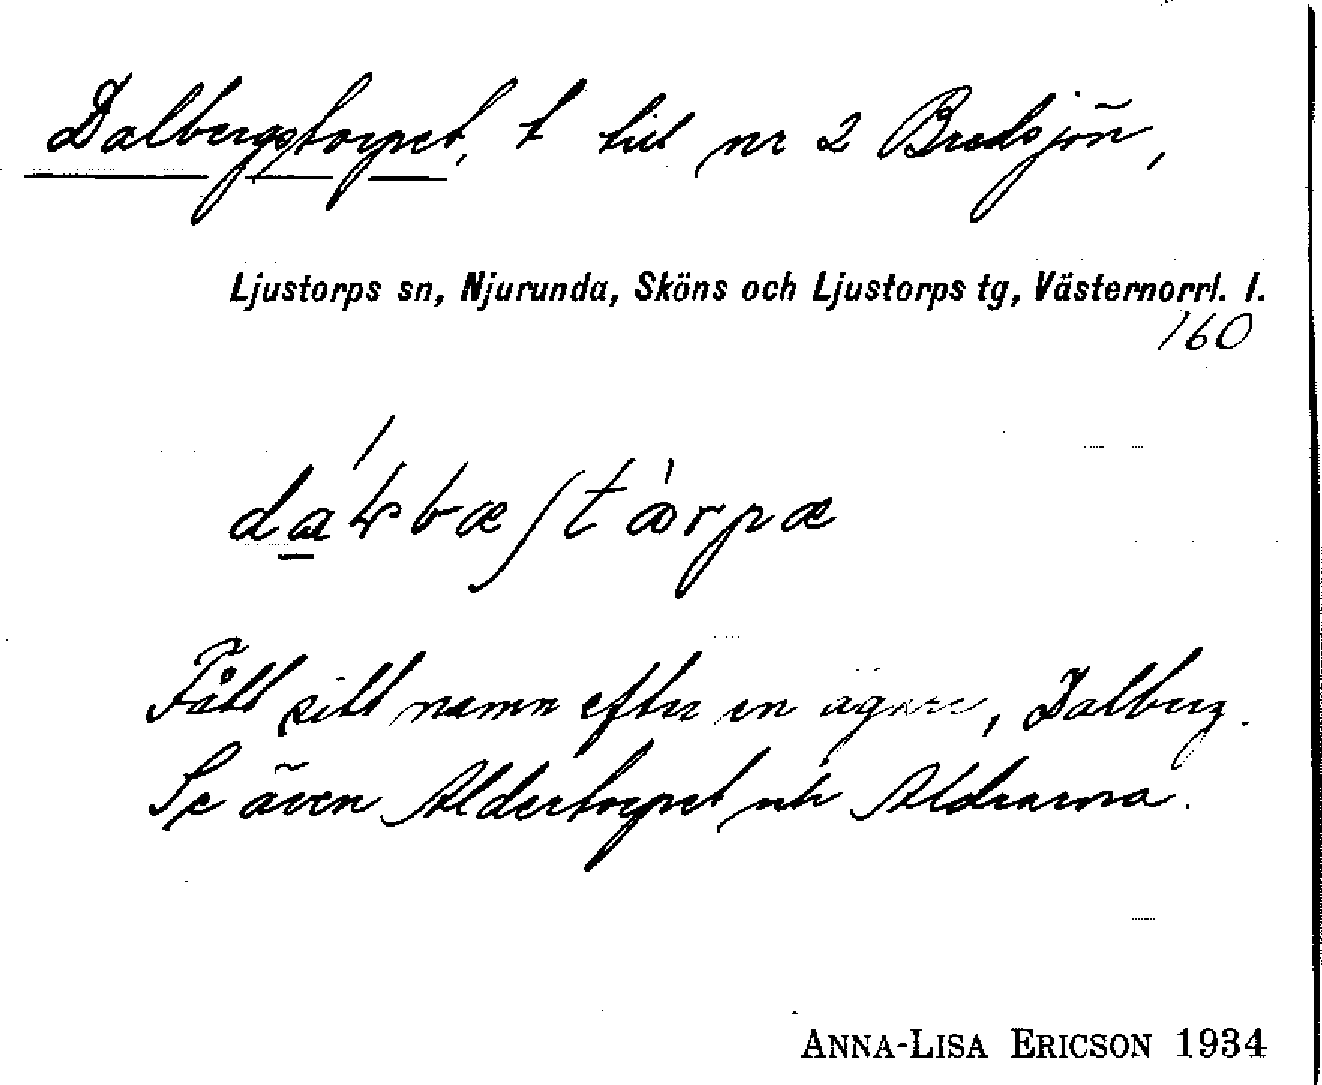 Dalbergstorpet, t till nr 2 Bredsjön,
Ljustorps sn, Njurunda, Sköns och Ljustorps tg, Västernorrl. l.
160
Fått sitt namn efter en ägare, Dalberg.
Se även Aldertorpet och
ANNA-LISA ERICSON 1934